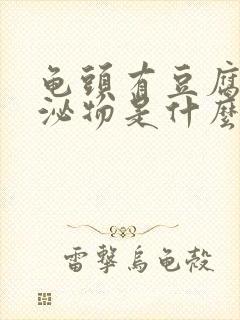 龟頭有豆腐
泌物是什麽
雷擊烏龜殼